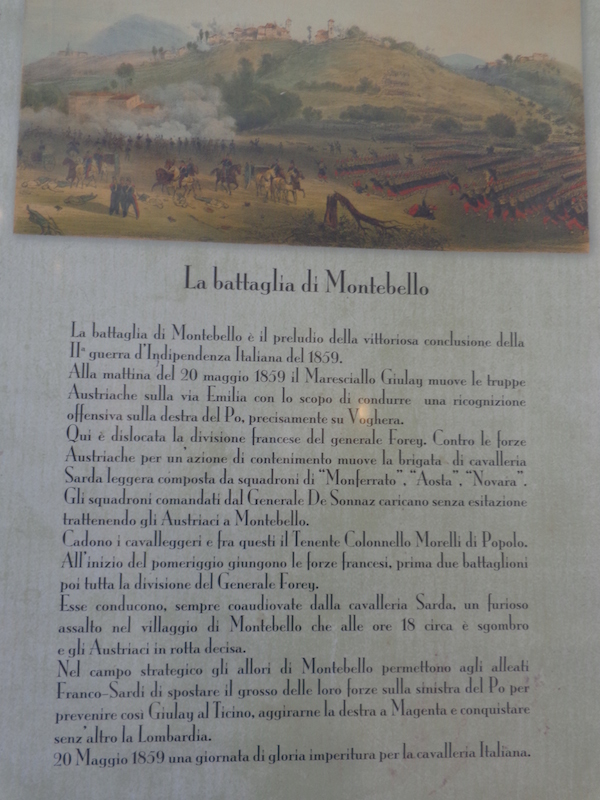 La battaglia di Montebello
La battaglia di Montebello è il preludio della vittoriosa conclusione della
IIª guerra d'Indipendenza Italiana del 1859.
Alla mattina del 20 maggio 1859 il Maresciallo Giulay muove le truppe
Austriache sulla via Emilia con lo scopo di condurre una ricognizione
offensiva sulla destra del Po, precisamente su Voghera.
Qui è dislocata la divisione francese del generale Forey. Contro le forze
Austriache per un'azione di contenimento muove la brigata di cavalleria
Sarda leggera composta da squadroni di "Monferrato", "Aosta", "Novara".
Gli squadroni comandati dal Generale De Sonnaz caricano senza esitazione
trattenendo gli Austriaci a Montebello.
Cadono i cavalleggeri e fra questi il Tenente Colonnello Morelli di Popolo.
All'inizio del pomeriggio giungono le forze francesi, prima due battaglioni
poi tutta la divisione del Generale Forey.
Esse conducono, sempre coaudiovate dalla cavalleria Sarda, un furioso
assalto nel villaggio di Montebello che alle ore 18 circa è sgombro
e gli Austriaci in rotta decisa.
Nel campo strategico gli allori di Montebello permettono agli alleati
Franco-Sardi di spostare il grosso delle loro forze sulla sinistra del Po per
prevenire così Giulay al Ticino, aggirarne la destra a Magenta e conquistare
senz'altro la Lombardia.
20 Maggio 1859 una giornata di gloria imperitura per la cavalleria Italiana.